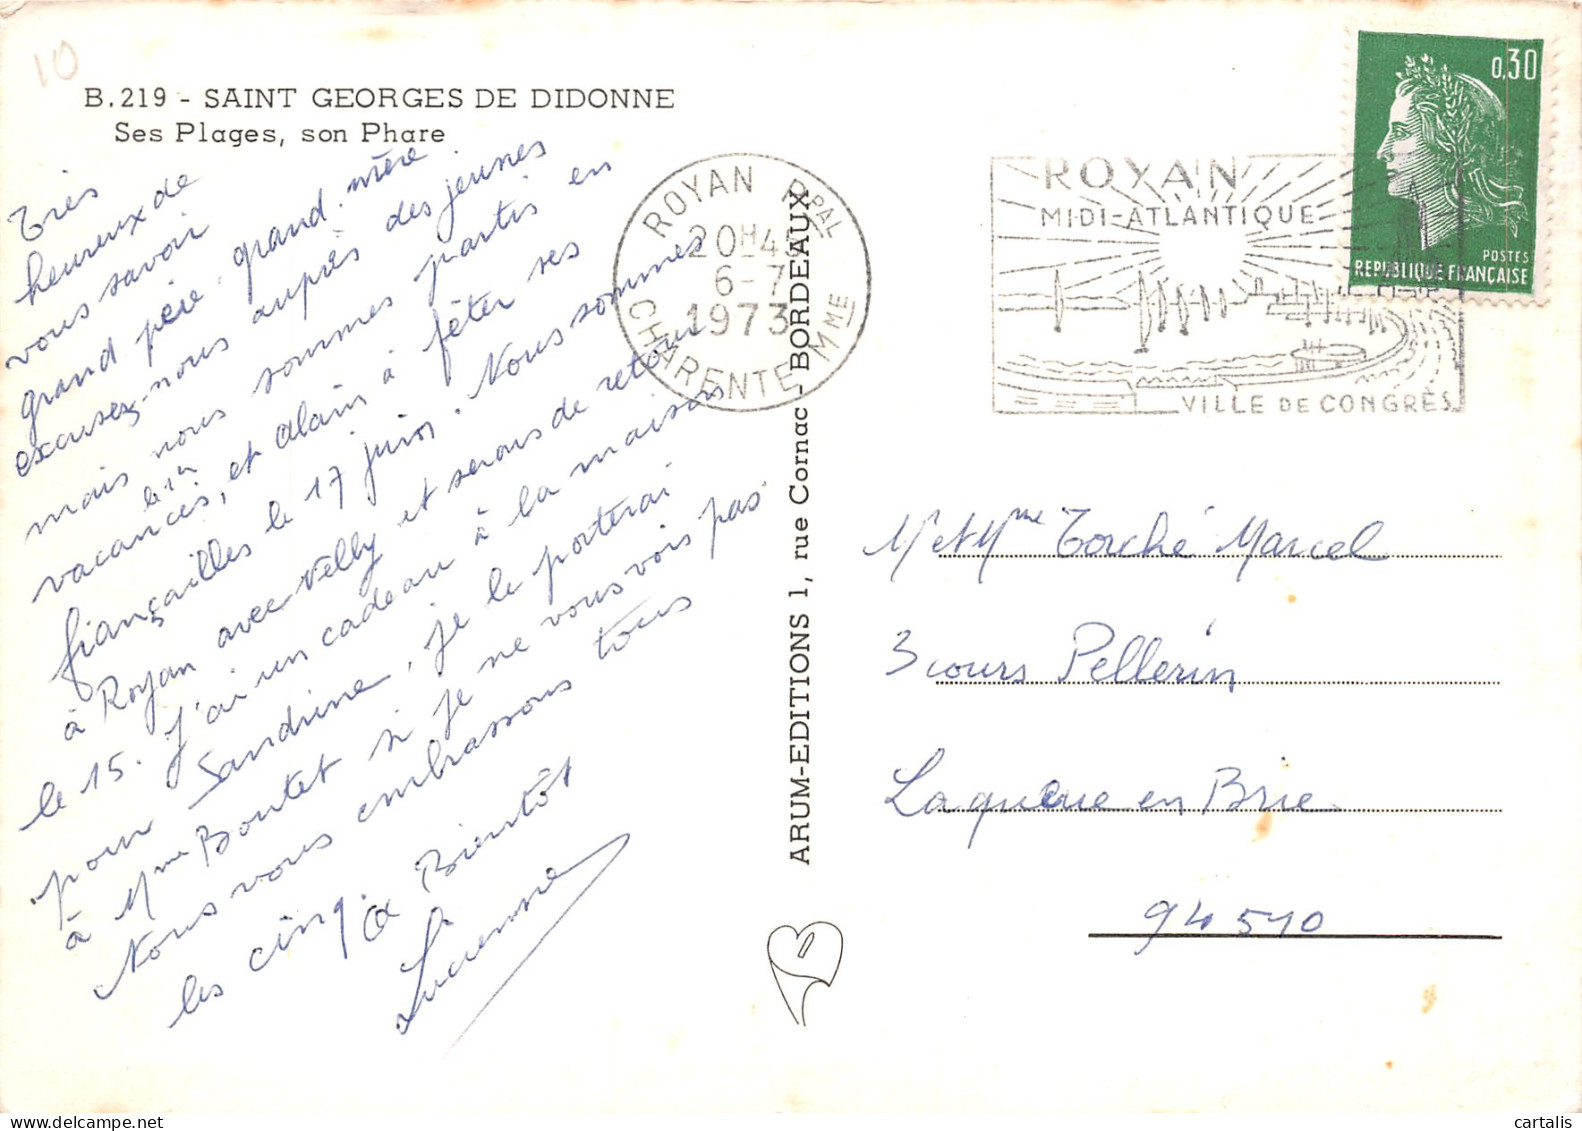 10
B.219 - SAINT GEORGES DE DIDONNE
Ses Plages, son Phare
Très
heureux de
vous savoir
grand père, grand-mère
excusez-nous auprès des jeunes
mais nous sommes partis en
le 1er
vacances, et Alain à fêter ses
fiançailles le 17 juin. Nous sommes
à Royan avec Nelly et serons de retour
le 15. J'ai un cadeau à la maison
pour Sandrine, je le porterai
à Mme Boutet si je ne vous vois pas
Nous vous embrassons tous
les cinq. a Bientôt
Lucienne
ARUM-EDITIONS 1, rue Cornac - BORDEAUX
ROYAN RPAL
20H45
6-7
1973
CHARENTE MME
ROYAN
MIDI-ATLANTIQUE
VILLE DE CONGRÈS
0,30
POSTES
REPUBLIQUE FRANÇAISE
M et Mme Torché Marcel
3 cours Pellerin
La queue en Brie
94510
cartalis.com